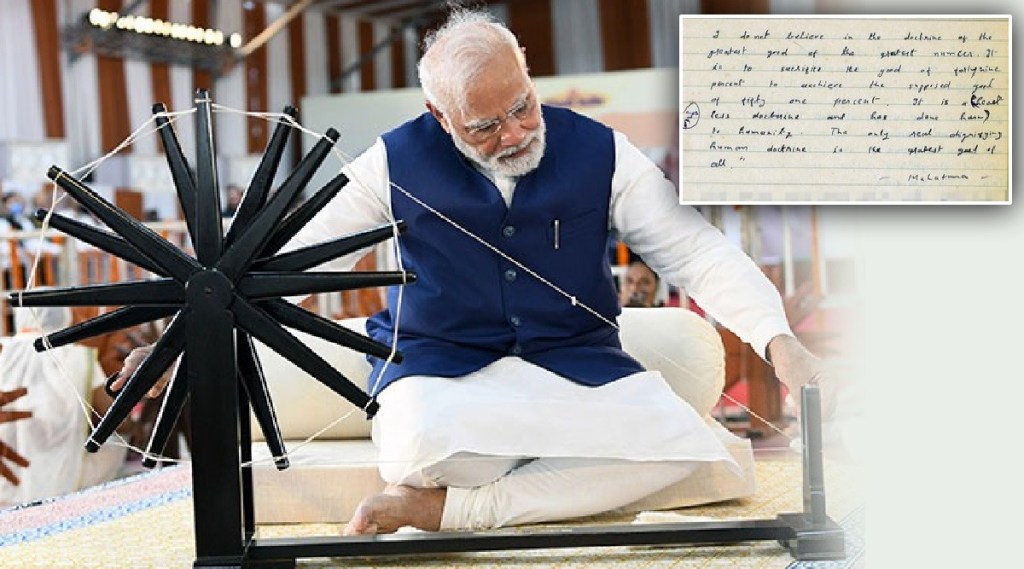 I do not believe in the doctrine of the
greatest good of the greatest number. It
is to sacrifice the good of fortynine
percent to achieve the supposed good
of fifty one percent. It is a heart
less doctrine and has done harm
to humanity. The only real dignifying
human doctrine is the greatest good of
all "
- Mahatma -